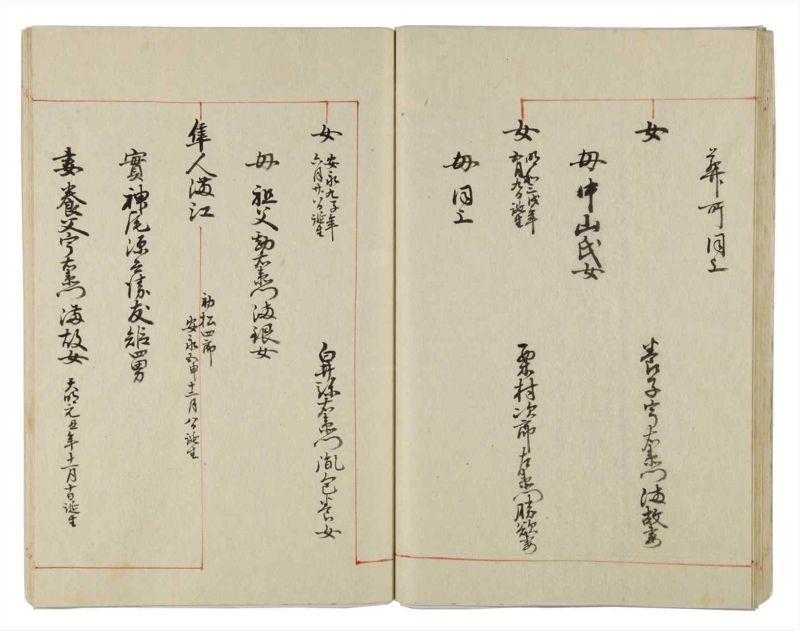 葬所同上
女
養子宇右衛門満故妻
母中山氏女
女
明和三戌年
六月九日誕生
栗村次郎左衛門勝欽妻
母同上
女
安永九子年
六月廿八日誕生
白井弥右衛門胤包養女
母祖父勘右衛門満眼女
隼人満江
初松四郎
安永五申十二月八日誕生
實神尾源兵衛友矩四男
妻養父宇右衛門満故女
天明元丑年十一月十日誕生